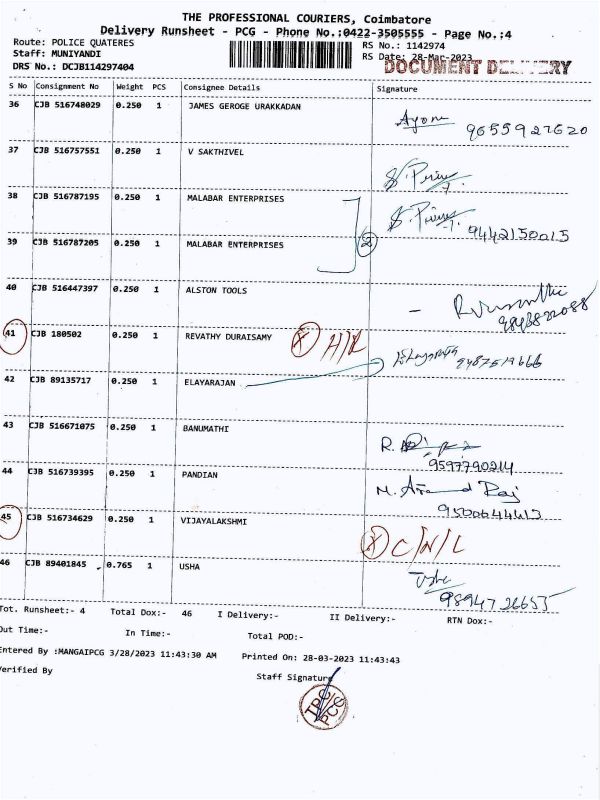 THE PROFESSIONAL COURIERS, Coimbatore
Delivery Runsheet - PCG - Phone No.:0422-3505555 - Page No.:4
Route: POLICE QUATERES
RS No.: 1142974
Staff: MUNIYANDI
RS Date: 28-Mar-2023
DRS No.: DCJB114297404
DOCUMENT DELIVERY
S No Consignment No Weight PCS Consignee Details Signature
36 CJB 516748029 0.250 1 JAMES GEROGE URAKKADAN
9655927620
37 CJB 516757551 0.250 1 V SAKTHIVEL
38 CJB 516787195 0.250 1 MALABAR ENTERPRISES
9442150015
39 CJB 516787205 0.250 1 MALABAR ENTERPRISES 2
40 CJB 516447397 0.250 1 ALSTON TOOLS
41 CJB 180502 0.250 1 REVATHY DURAISAMY X H/L
42 CJB 89135717 0.250 1 ELAYARAJAN
43 CJB 516671075 0.250 1 BANUMATHI
9597790214
44 CJB 516739395 0.250 1 PANDIAN
45 CJB 516734629 0.250 1 VIJAYALAKSHMI X C/N/L
46 CJB 89401845 0.765 1 USHA Usha
Tot. Runsheet:- 4 Total Dox:- 46 I Delivery:- II Delivery:- RTN Dox:-
Out Time:- In Time:- Total POD:-
Entered By :MANGAIPCG 3/28/2023 11:43:30 AM Printed On: 28-03-2023 11:43:43
Verified By Staff Signature
TPC
PCG